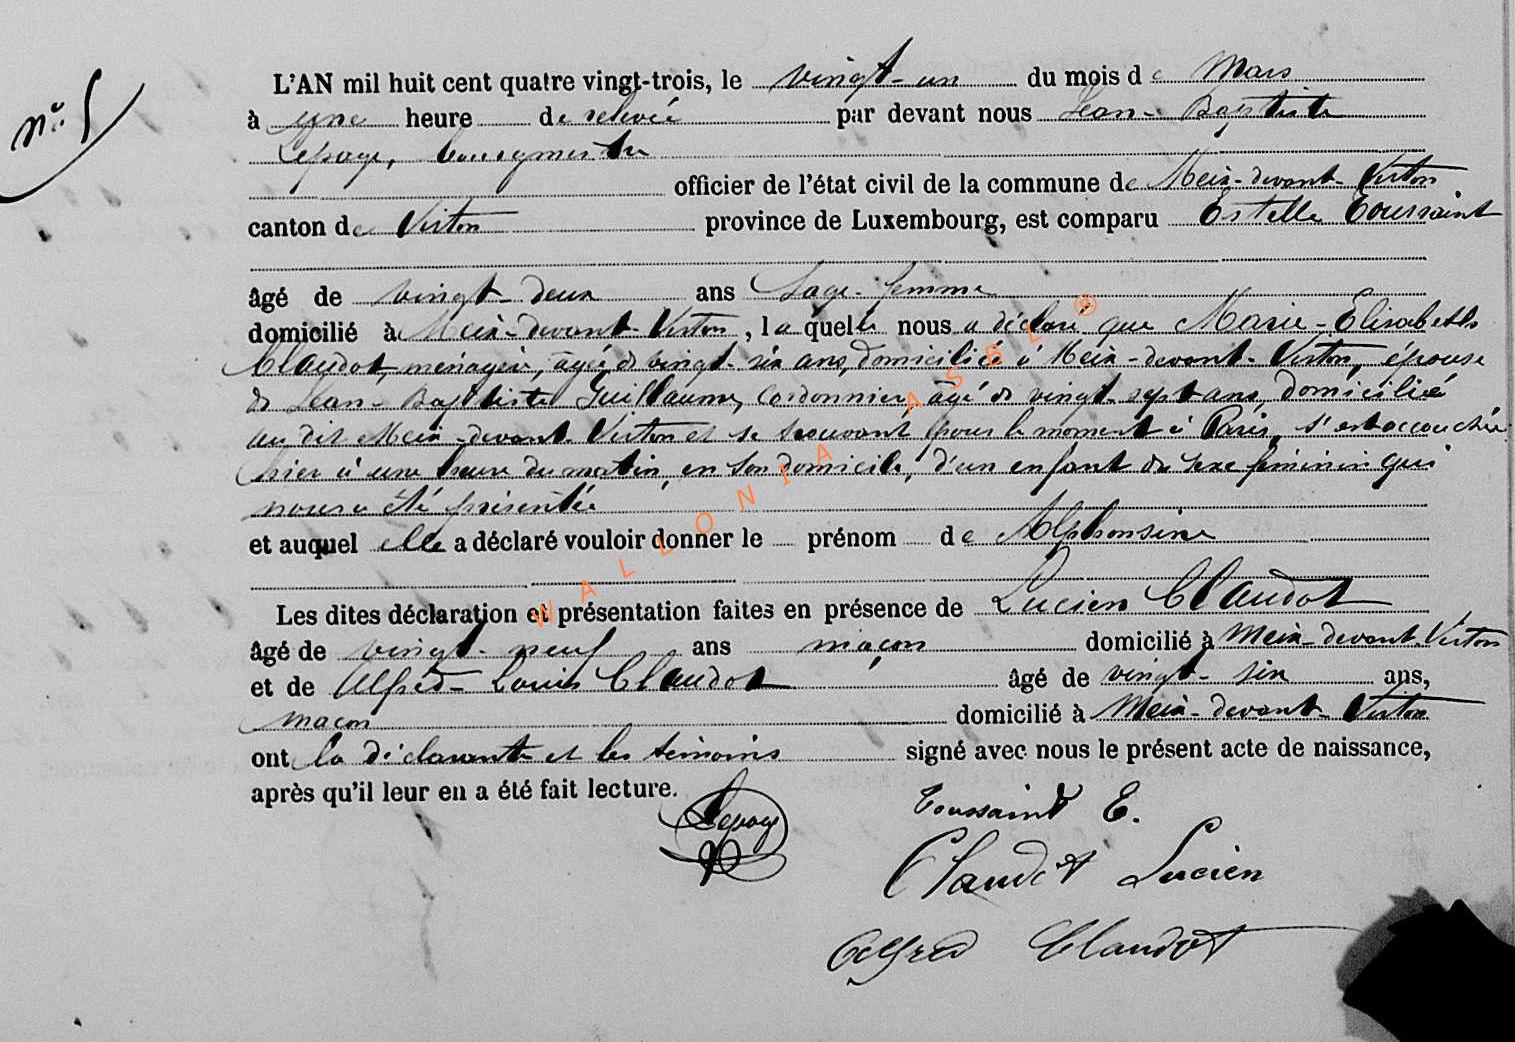 N° 5
L'AN mil huit cent quatre vingt-trois, le vingt-un du mois de Mars
à une heure de relevée par devant nous Jean-Baptiste
Lepage, bourgmestre
officier de l'état civil de la commune de Meix-devant-Virton
canton de Virton province de Luxembourg, est comparu Estelle Toussaint
âgé de vingt-deux ans Sage-femme
domicilié à Meix-devant-Virton, laquelle nous a déclaré que Marie-Elisabeth
Claudot, ménagère, âgée de vingt-six ans, domiciliée à Meix-devant-Virton, épouse
de Jean-Baptiste Guillaume, Cordonnier, âgé de vingt-sept ans, domicilié
au dit Meix-devant-Virton et se trouvant pour le moment à Paris, s'est accouchée
hier à une heure du matin, en son domicile, d'un enfant du sexe féminin qui
nous a été présentée
et auquel elle a déclaré vouloir donner le prénom de Alphonsine
Les dites déclaration et présentation faites en présence de Lucien Claudot
âgé de vingt-neuf ans maçon domicilié à Meix-devant-Virton
et de Alfred-Louis Claudot âgé de vingt-six ans,
maçon domicilié à Meix-devant-Virton
ont la déclarante et les témoins signé avec nous le présent acte de naissance,
après qu'il leur en a été fait lecture.
Lepage
Toussaint E.
Claudot Lucien
Alfred Claudot
WALLONIA ASBL ®